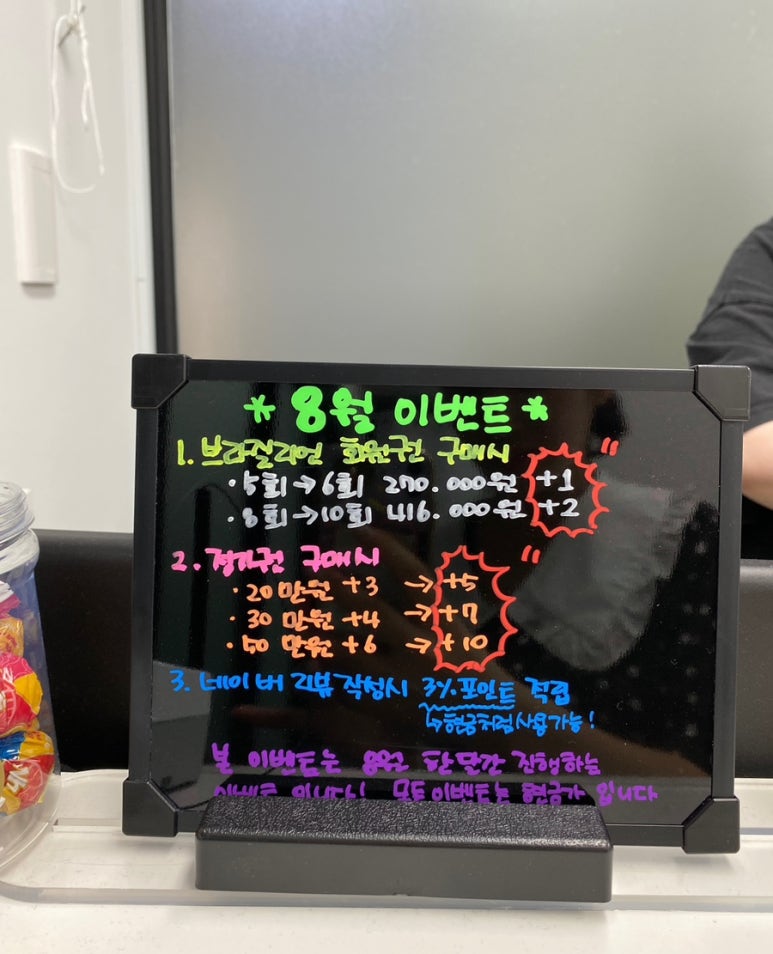 * 8월 이벤트 *
1. 브라질리언 회원권 구매시 "
· 5회 → 6회 270.000원 +1
· 8회 → 10회 416.000원 +2
2. 정기권 구매시 "
· 20만원 +3 → +5
· 30만원 +4 → +7
· 50만원 +6 → +10
3. 네이버 리뷰 작성시 3% 포인트 적립
↳ 현금처럼 사용가능!
본 이벤트는 8월 한달간 진행하는
이벤트 입니다! 모든 이벤트는 현금가 입니다